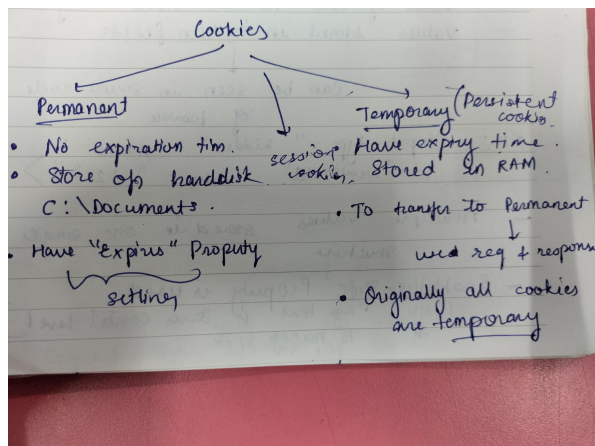 Cookies
Permanent
• No expiration tim.
• Store on harddisk
C:\Documents.
• Have "Expirus" Property
setting
session
cookies
Temporary (Persistent
cookie
• Have expiry time.
Stored in RAM.
• To transfer to Permanent
used req & response
• Originally all cookies
are temporary